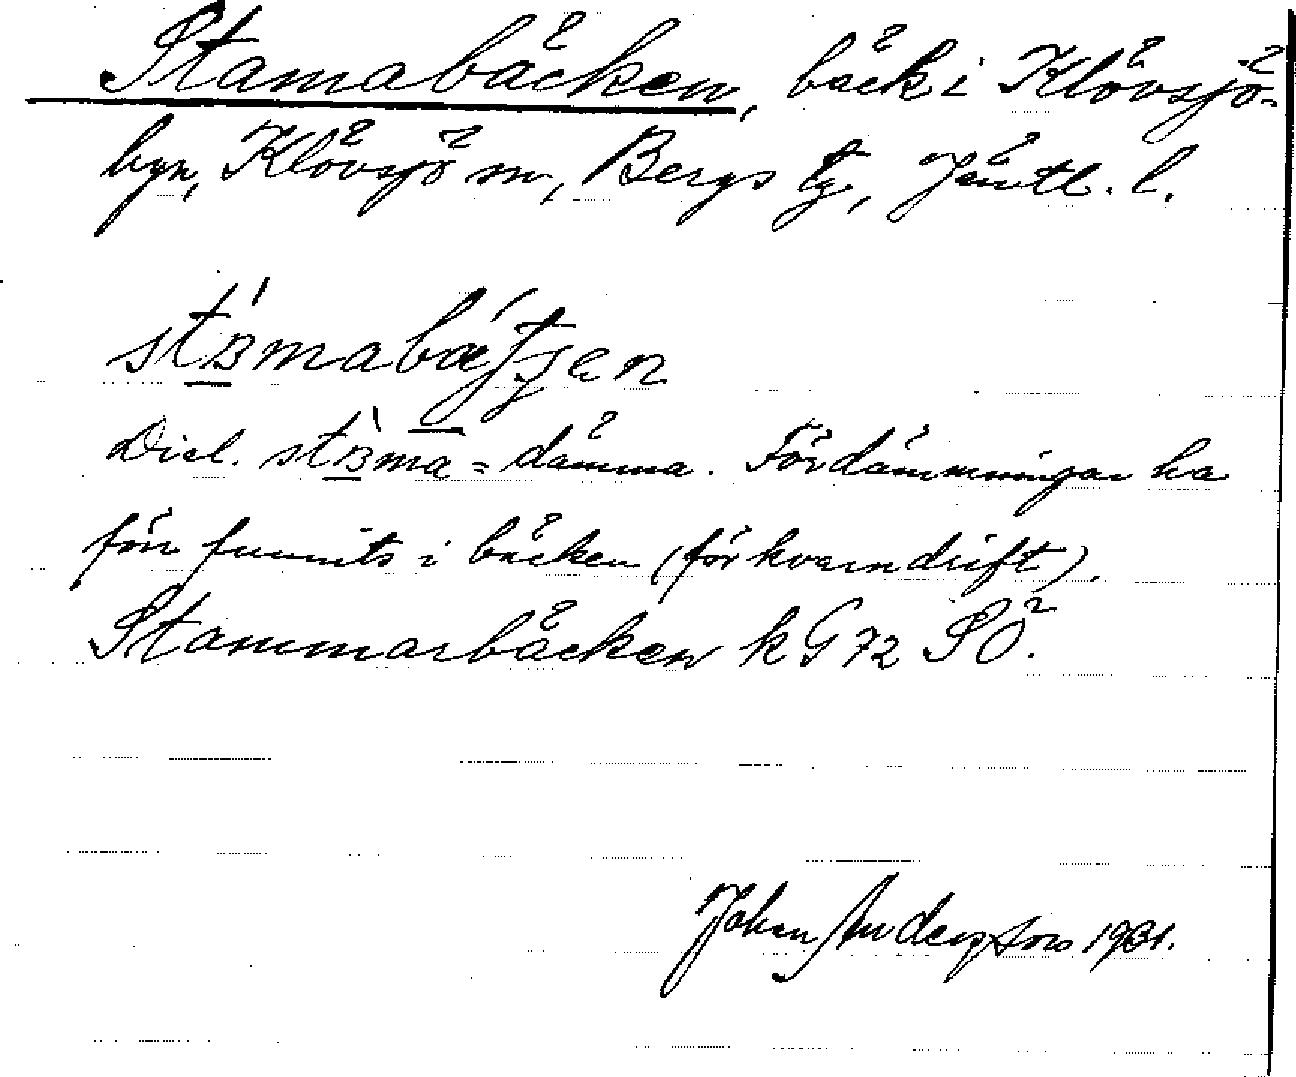 Stamabäcken, bäck i Klövsjö-
byn, Klövsjö sn, Bergs tg, Jämtl. l.
Dial. = dämma. Fördämningar ha
förr funnits i bäcken (för kvarndrift).
Stammarbäcken k G 72 SO.
Johan Andersson 1931.